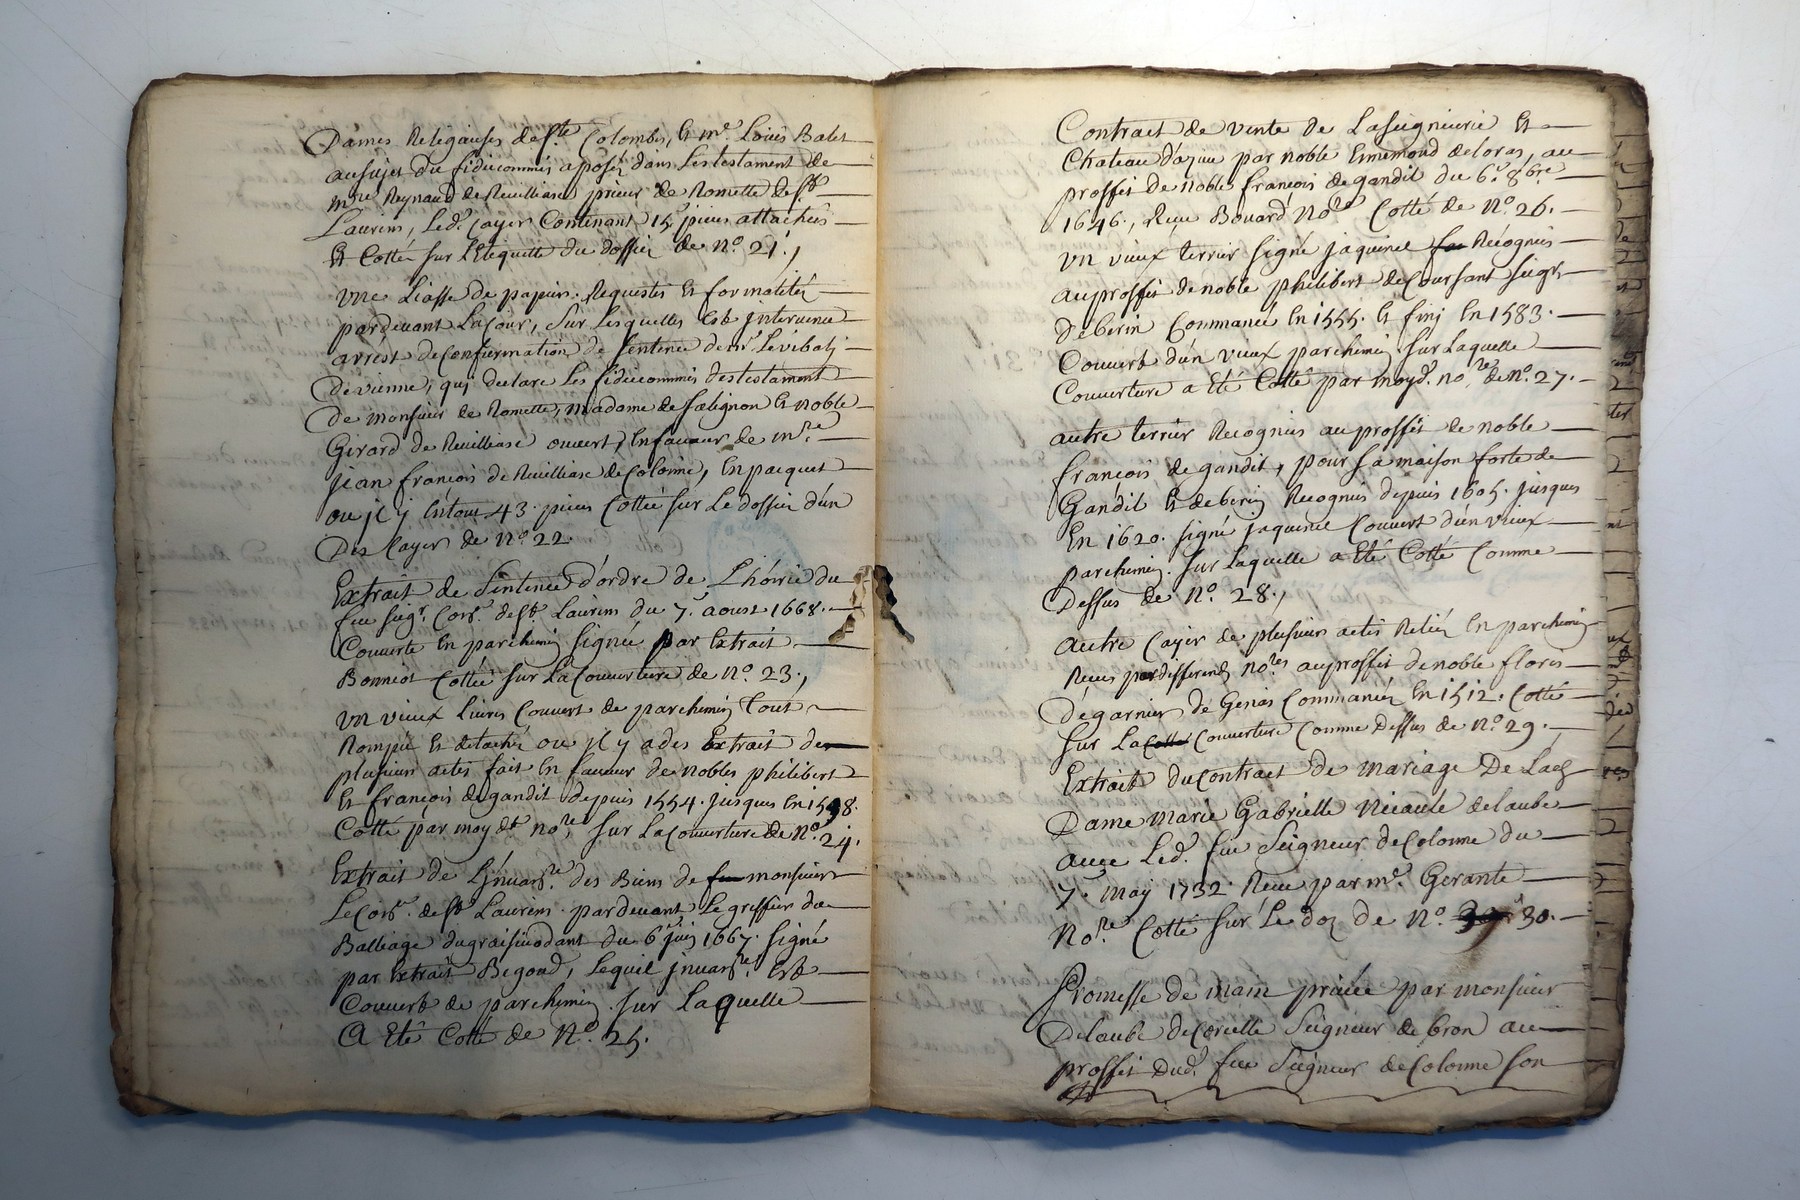 Dames Religieuses de Ste Colombe, et me. Louis Balet
au sujet du fideicommis aposéz dans les testament de
mre Reynaud de Revilliase prieur de Romette de St
Laurens, led. Cayer Contenant 15 pieces attachées
Et Cotté sur l'Etiquette du dossier de No. 21.,
Une Liasse de papiers. Requestes et formalités
pardevant La Cour, sur Lesquelles est intervenu
arrest de Confirmation de sentence de mr. Le vibalj
de vienne, quj declare les fideicommis des testament
de monsieur de Romette, madame de salignon et noble
Girard de Revilliase ouvert, En faveur de mre.
jean françois de Revilliase de Colonne, En pacquet
ou jl y En tout 43. pieces Cottée sur Le dossier d'un
Des Cayer de No. 22.
Extrait de Sentence d'ordre de L'hoirie du
feu seigr. Cons. de St. Laurens du 7. aoust 1668.
Couverte En parchemin signée par Extrait
Bonniot Cottée sur La Couverture de No. 23.,
Un vieux Livres Couvert de parchemin Tout
Rompû et detaché ou jl y a des Extrait de
plusieurs actes fait En faveur de nobles philibert
Et françois de gandit depuis 1554. jusques En 1598.
Cotté par moy dt. nore, sur La Couverture de No. 24.
Extrait de L'jnvarre. des Biens de feu monsieur
Le Cons. de St Laurens. pardevant Le greffier du
Balliage du graisivodant du 6e juin 1667. signé
par Extrait Bigoud, Lequel jnvarre. Est
Couvert de parchemin. sur Laquelle
A Eté Cotté de No. 25.
Contract de vente de La seigneurie Et
Chateau d'azieu par noble Emémond de Loras, au
proffit de noble françois de gandil du 6e. 8bre
1646., Reçu Bouard Nore Cotté de No. 26.
Un vieux terrier signé jaquinel feu Recognus
au proffit de noble philibert de Coursant seigr
de berin Commancé En 1555. Et finj En 1583.
Couvert d'un vieux parchemin. sur Laquelle
Couverture a Eté Cotté par moy d. nore de No. 27.
autre terrier Recognus au proffit de noble
françois de gandit, pour sa maison forte de
Gandil Et de berin Recognus depuis 1605. jusques
En 1620. signé jaquinel Couvert d'un vieux
parchemin. sur Laquelle a Eté Cotté Comme
Dessus de No. 28.,
Autre Cayer de plusieurs actes Reliéz En parchemin
Reçus par differends nores au proffit de noble floris
Degarnier de Genas Commancéz En 1512. Cotté
sur La Cotté Couverture Comme Dessus de No. 29.
Extrait du Contract de mariage De
Dame marie Gabrielle Nicaule de Laube
avec Led. feu Seigneur de Colonne du
7e. may 1732. Reçu par me. Gerante
Nore. Cotté sur Le doz de No. 30.
Promesse de main privée par monsieur
Delaube de Corcelle Seigneur de bron au
proffit Dud. feu Seigneur de Colonne son